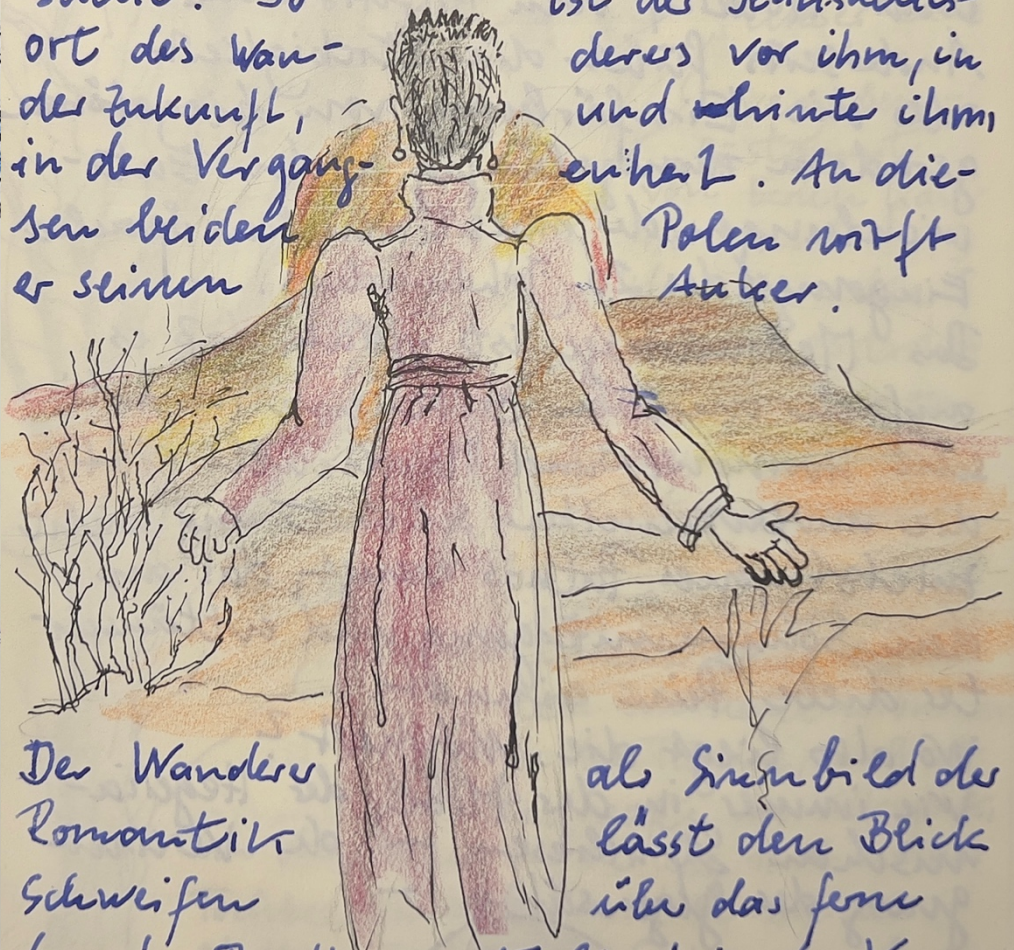 ist der Sehnsuchts-
ort des Wan- derers vor ihm, in
der Zukunft, und hinter ihm,
in der Vergang- enheit. An die-
sen beiden Polen wirft
er seinen Anker.
Der Wanderer als Sinnbild der
Romantik lässt den Blick
Schweifen über das ferne